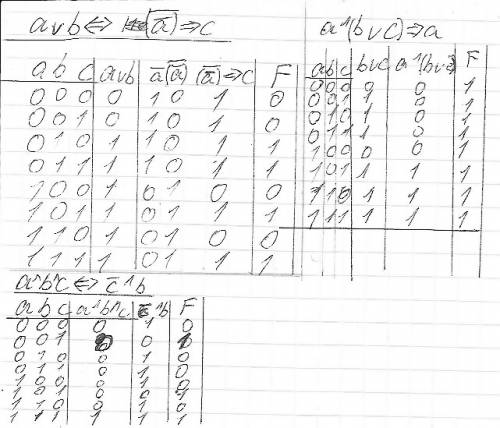 a∨b⇔(a̿)⇒c
a b c a∨b a̅ (a̿) (a̿)⇒c F
0 0 0 0 1 0 1 0
0 0 1 0 1 0 1 0
0 1 0 1 1 0 1 1
0 1 1 1 1 0 1 1
1 0 0 1 0 1 0 0
1 0 1 1 0 1 1 1
1 1 0 1 0 1 0 0
1 1 1 1 0 1 1 1
a^(b∨c)⇒a
a b c b∨c a^(b∨c) F
0 0 0 0 0 1
0 0 1 1 0 1
0 1 0 1 0 1
0 1 1 1 0 1
1 0 0 0 0 1
1 0 1 1 1 1
1 1 0 1 1 1
1 1 1 1 1 1
a^b^c⇔c̅^b
a b c a^b^c c̅^b F
0 0 0 0 1 0
0 0 1 0 0 1
0 1 0 0 1 0
0 1 1 0 1 0
1 0 0 0 1 0
1 0 1 0 0 1
1 1 0 0 1 0
1 1 1 1 1 1